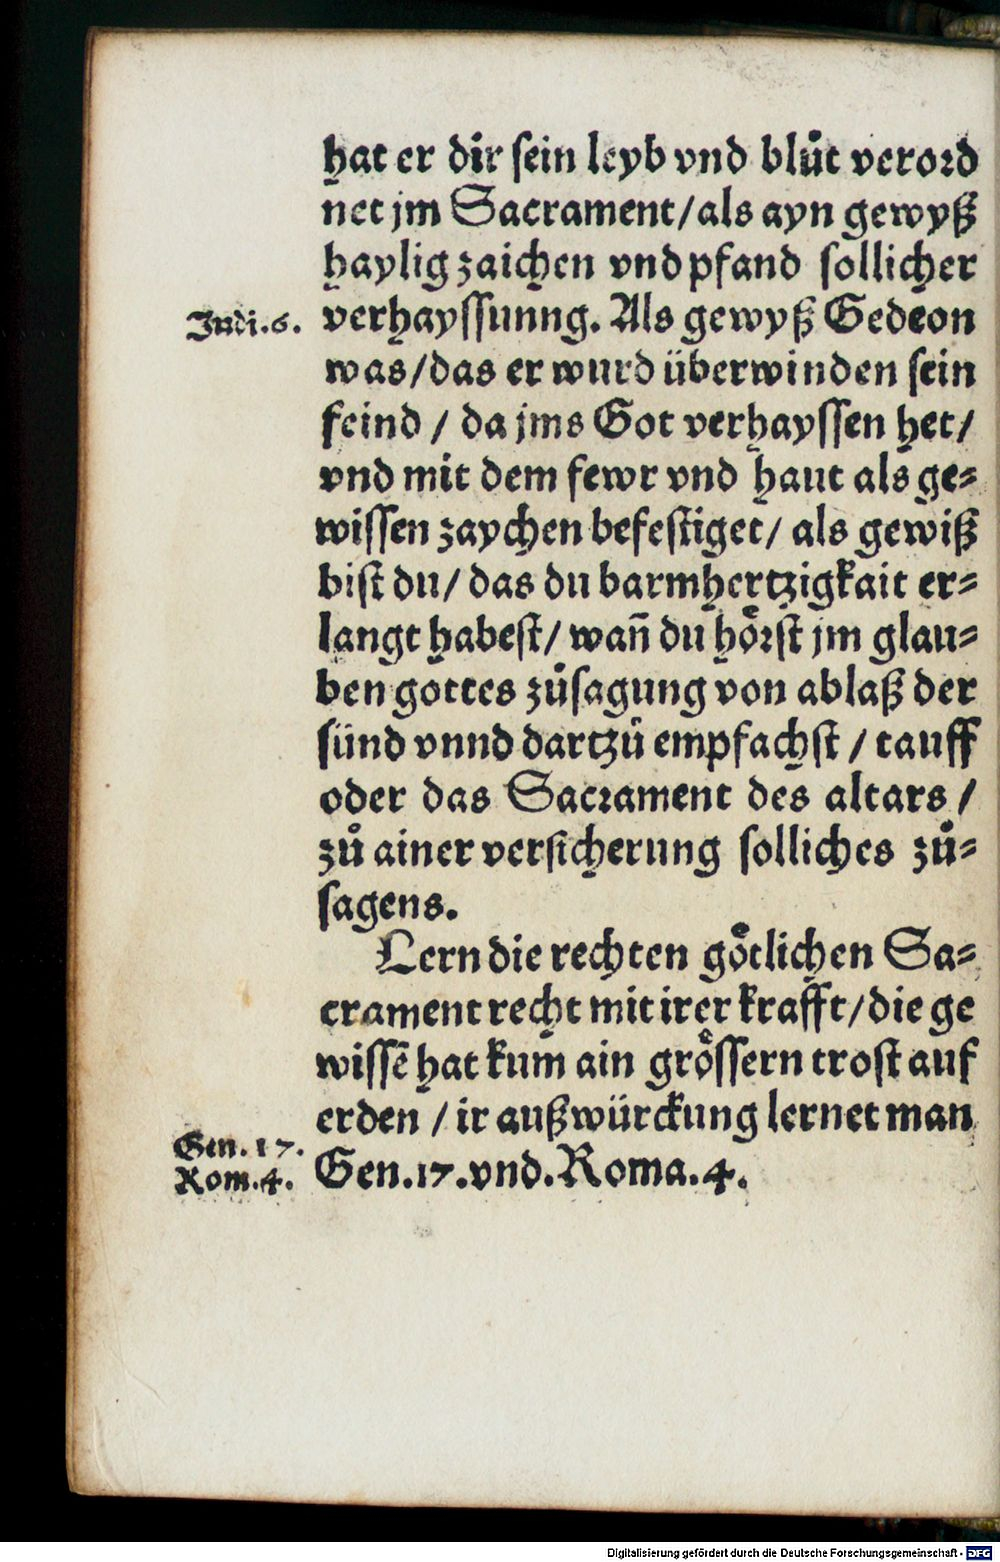 hat er dir sein leyb vnd blůt verord
net jm Sacrament/als ayn gewyß
haylig zaichen vnd pfand sollicher
Judi.6.
verhayssunng. Als gewyß Gedeon
was/das er wurd überwinden sein
feind / da jms Got verhayssen het/
vnd mit dem fewr vnd haut als ge⸗
wissen zaychen befestiget/ als gewiß
bist du/ das du barmhertzigkait er⸗
langt habest/ wañ du hoͤrst jm glau⸗
ben gottes zůsagung von ablaß der
sünd vnnd dartzů empfachst / tauff
oder das Sacrament des altars /
zů ainer versicherung solliches zů⸗
sagens.
Lern die rechten goͤtlichen Sa⸗
crament recht mit irer krafft/die ge
wissē hat kum ain groͤssern trost auf
erden / ir außwürckung lernet man
Gen.17.
Rom.4.
Gen.17.vnd.Roma.4.
Digitalisierung gefördert durch die Deutsche Forschungsgemeinschaft - DFG